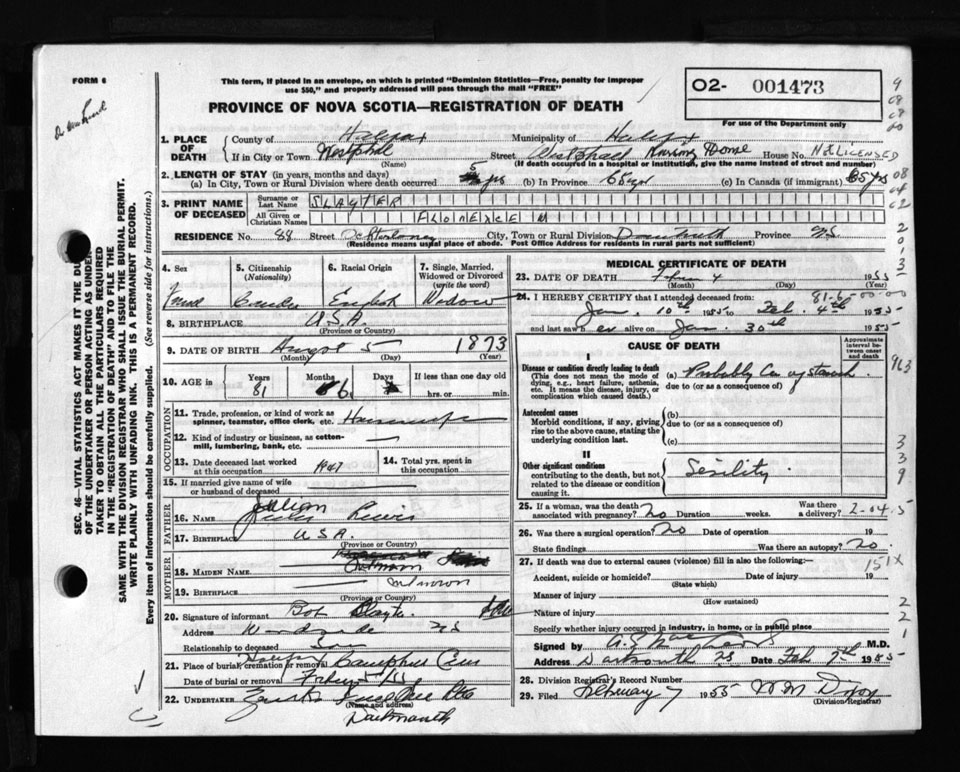 FORM 6
This form, if placed in an envelope, on which is printed "Dominion Statistics—Free, penalty for improper
use $50," and properly addressed will pass through the mail "FREE"
O2- 001473
For use of the Department only
PROVINCE OF NOVA SCOTIA—REGISTRATION OF DEATH
1. PLACE OF DEATH
County of Halifax Municipality of Halifax
If in City or Town Westphal Street Westphal Nursing Home House No. N.S. LICENSED
(Name) (If death occurred in a hospital or institution, give the name instead of street and number)
2. LENGTH OF STAY (in years, months and days)
(a) In City, Town or Rural Division where death occurred 5 yrs (b) In Province 65 yr (c) In Canada (if immigrant) 65 yrs
3. PRINT NAME OF DECEASED
Surname or Last Name SLAYTER
All Given or Christian Names FLORENCE M
RESIDENCE No. 88 Street City, Town or Rural Division Dartmouth Province N.S.
(Residence means usual place of abode. Post Office Address for residents in rural parts not sufficient)
4. Sex
5. Citizenship (Nationality)
6. Racial Origin
7. Single, Married, Widowed or Divorced (write the word)
English Widow
8. BIRTHPLACE U.S.A.
(Province or Country)
9. DATE OF BIRTH August 5 1873
(Month) (Day) (Year)
10. AGE in Years Months Days If less than one day old
81 6 hrs. or min.
OCCUPATION
11. Trade, profession, or kind of work as spinner, teamster, office clerk, etc. Housewife
12. Kind of industry or business, as cotton-mill, lumbering, bank, etc. —
13. Date deceased last worked at this occupation 1947
14. Total yrs. spent in this occupation
15. If married give name of wife or husband of deceased
FATHER
16. NAME Julian Lewis
17. BIRTHPLACE U.S.A.
(Province or Country)
MOTHER
18. MAIDEN NAME Unknown
19. BIRTHPLACE unknown
(Province or Country)
20. Signature of informant Bob Slayter
Address Woodside NS
Relationship to deceased Son
21. Place of burial, cremation or removal Halifax Camphill Cem
Date of burial or removal
22. UNDERTAKER
(Name and address)
Dartmouth
MEDICAL CERTIFICATE OF DEATH
23. DATE OF DEATH 4 1955
(Month) (Day)
81-6-00-00
24. I HEREBY CERTIFY that I attended deceased from:
Jan. 10th 1955 to Feb. 4th 1955
and last saw her alive on Jan. 30th 1955
CAUSE OF DEATH
Approximate interval between onset and death
I
Disease or condition directly leading to death
(This does not mean the mode of dying, e.g., heart failure, asthenia, etc. It means the disease, injury, or complication which caused death.)
(a) Probably Ca of stomach.
due to (or as a consequence of)
Antecedent causes
Morbid conditions, if any, giving rise to the above cause, stating the underlying condition last.
(b)
due to (or as a consequence of)
(c)
II
Other significant conditions contributing to the death, but not related to the disease or condition causing it.
Senility.
25. If a woman, was the death associated with pregnancy? No Duration weeks. Was there a delivery?
26. Was there a surgical operation? No Date of operation 19
State findings Was there an autopsy? No.
27. If death was due to external causes (violence) fill in also the following:—
Accident, suicide or homicide? Date of injury 19
(State which)
Manner of injury
(How sustained)
Nature of injury
Specify whether injury occurred in industry, in home, or in public place
Signed by M.D.
Address Dartmouth NS Date Feb 7th 1955
28. Division Registrar's Record Number
29. Filed February 7 1955
(Division Registrar)
SEC. 46—VITAL STATISTICS ACT MAKES IT THE DUTY
OF THE UNDERTAKER OR PERSON ACTING AS UNDER-
TAKER TO OBTAIN ALL THE PARTICULARS REQUIRED
IN THE "REGISTRATION OF DEATH" AND TO FILE THE
SAME WITH THE DIVISION REGISTRAR WHO SHALL ISSUE THE BURIAL PERMIT.
WRITE PLAINLY WITH UNFADING INK. THIS IS A PERMANENT RECORD.
Every item of information should be carefully supplied. (See reverse side for instructions.)